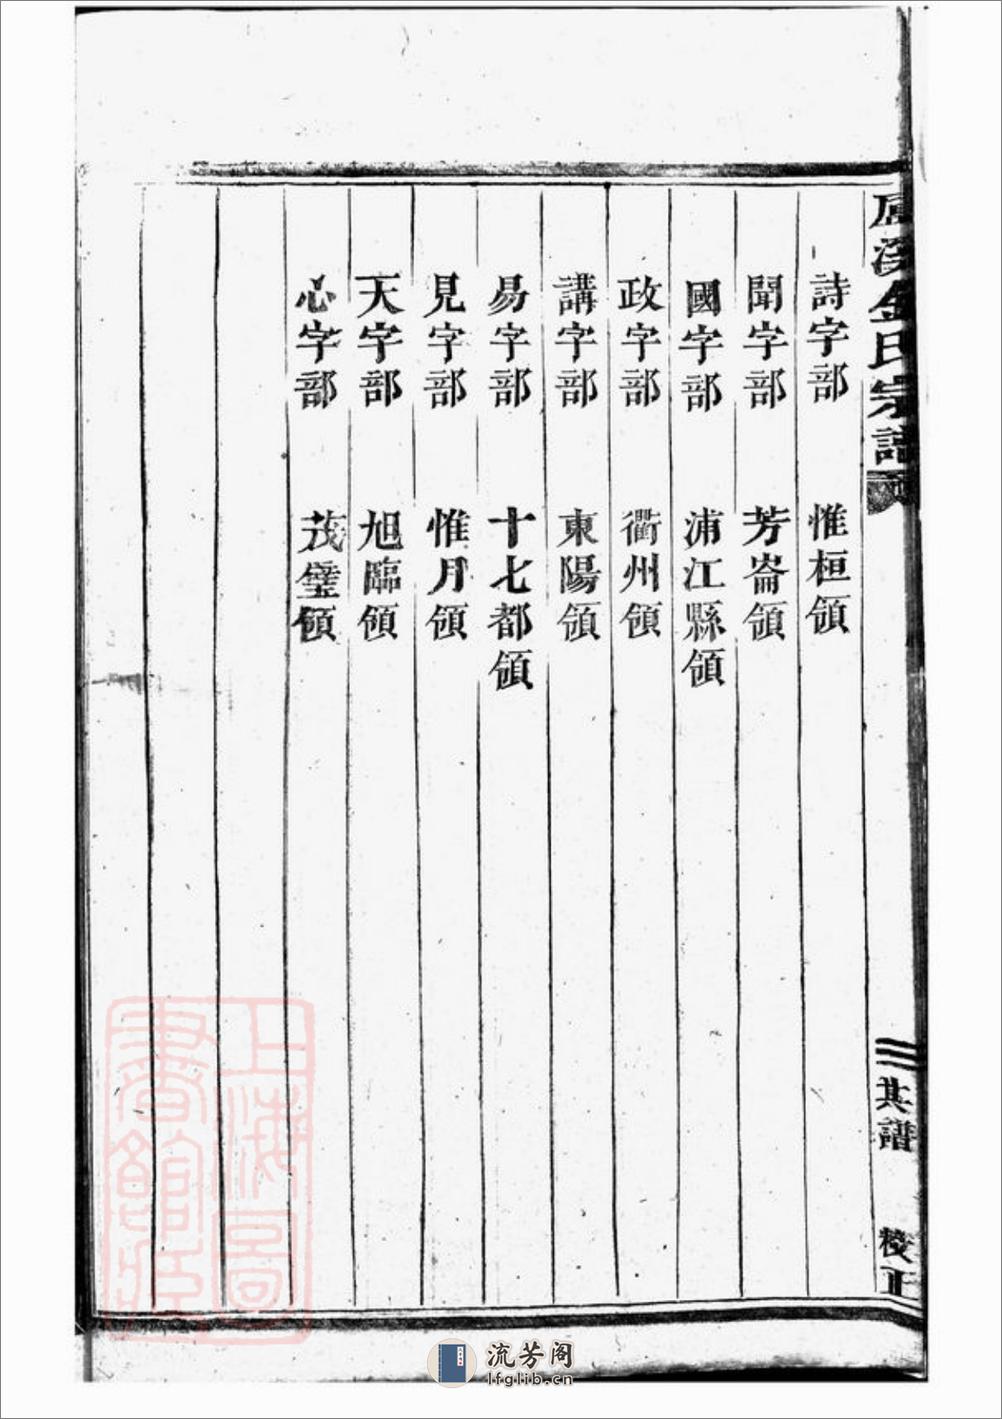 詩字部 惟桓領
聞字部 芳崙領
國字部 浦江縣領
政字部 衢州領
講字部 東陽領
易字部 十七都領
見字部 惟月領
天字部 旭臨領
心字部 茂璧領
溪金氏宗譜
其譜
校正
上海圖書館藏
流芳阁
lfglib.cn